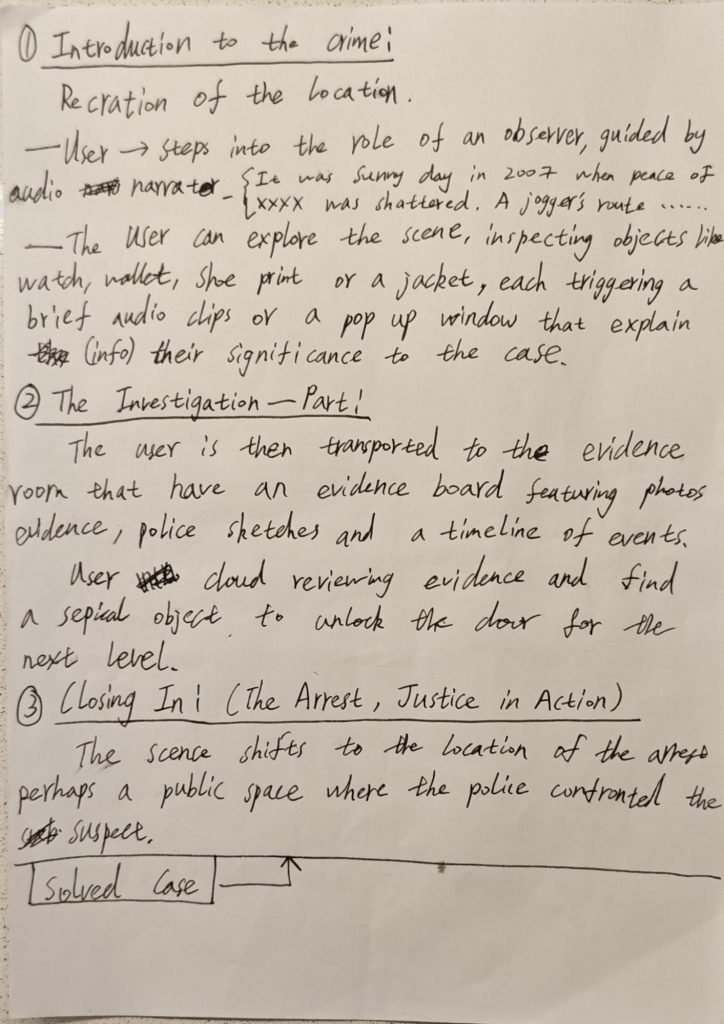 ① Introduction to the crime:
Recration of the location.
— User → steps into the role of an observer, guided by
audio narrator - { It was sunny day in 2007 when peace of
xxxx was shattered. A jogger's route ......
— The user can explore the scene, inspecting objects like
watch, wallet, shoe print or a jacket, each triggering a
brief audio clips or a pop up window that explain
(info) their significance to the case.
② The Investigation — Part:
The user is then transported to the evidence
room that have an evidence board featuring photos
evidence, police sketches and a timeline of events.
User cloud reviewing evidence and find
a sepical object to unlock the door for the
next level.
③ Closing In: (The Arrest, Justice in Action)
The scence shifts to the location of the arrest
perhaps a public space where the police confronted the
suspect.
Solved Case